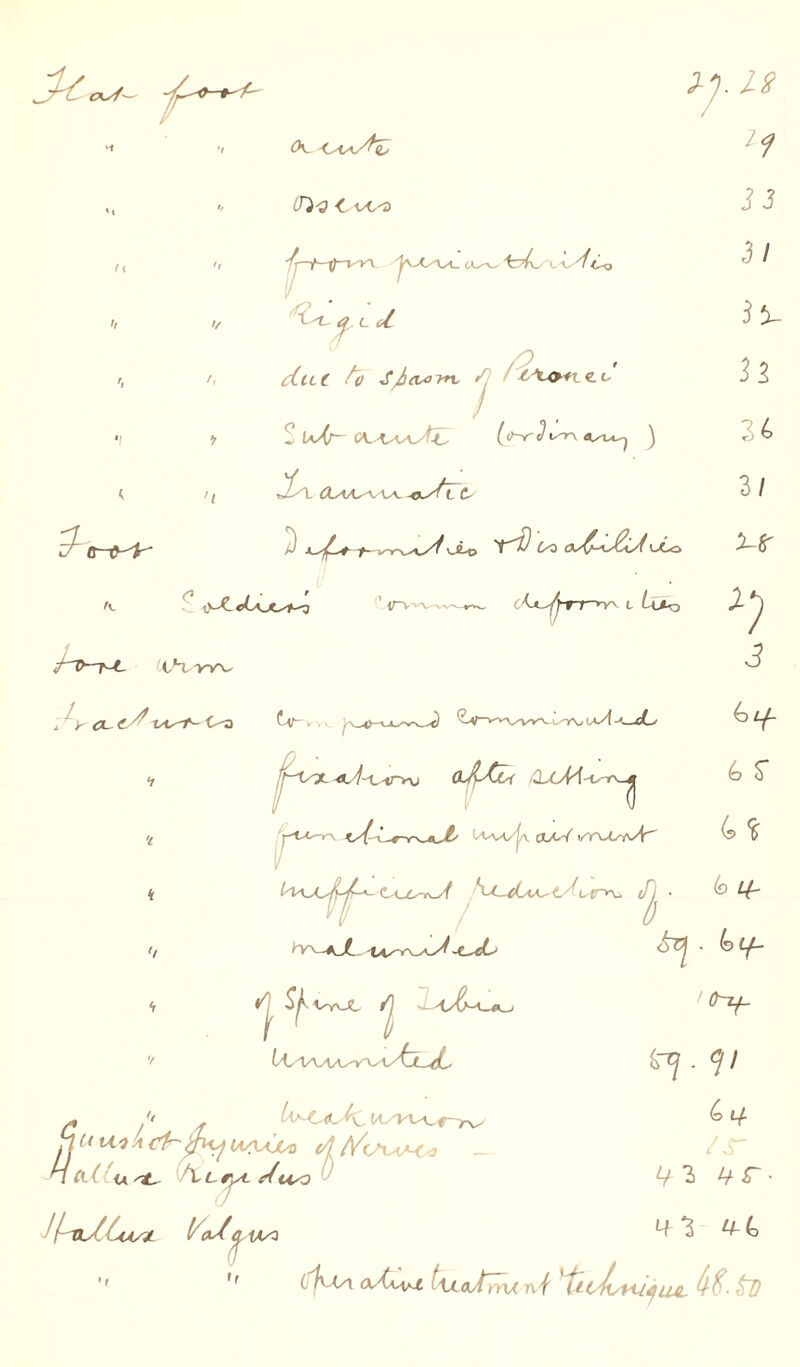 Flat foot 27. 28
" " acute 29
" " Osseus 33
" " from periarthritis 31
" " Rigid 32
" " due to Spasm of Peronei 33
" " Sub-acute (ordinary) 36
" " Traumatic 31
Foot Deformities + Disabilities 28
" Soldiers Common deformities 27
Fore arm 3
Fractures Compound Comminuted 64
" fixation after setting 65
" functional impairment 68
" insufficient reduction of . 64
" mal united 59. 64
" of Spine of Tibia 104
" Ununited 59. 91
" weak union 64
Gunshot Injuries of Nerves — 15
Hallux Rigidus 43 45.
Hallux Valgus 43 46
" " operative treatment technique 48. 50